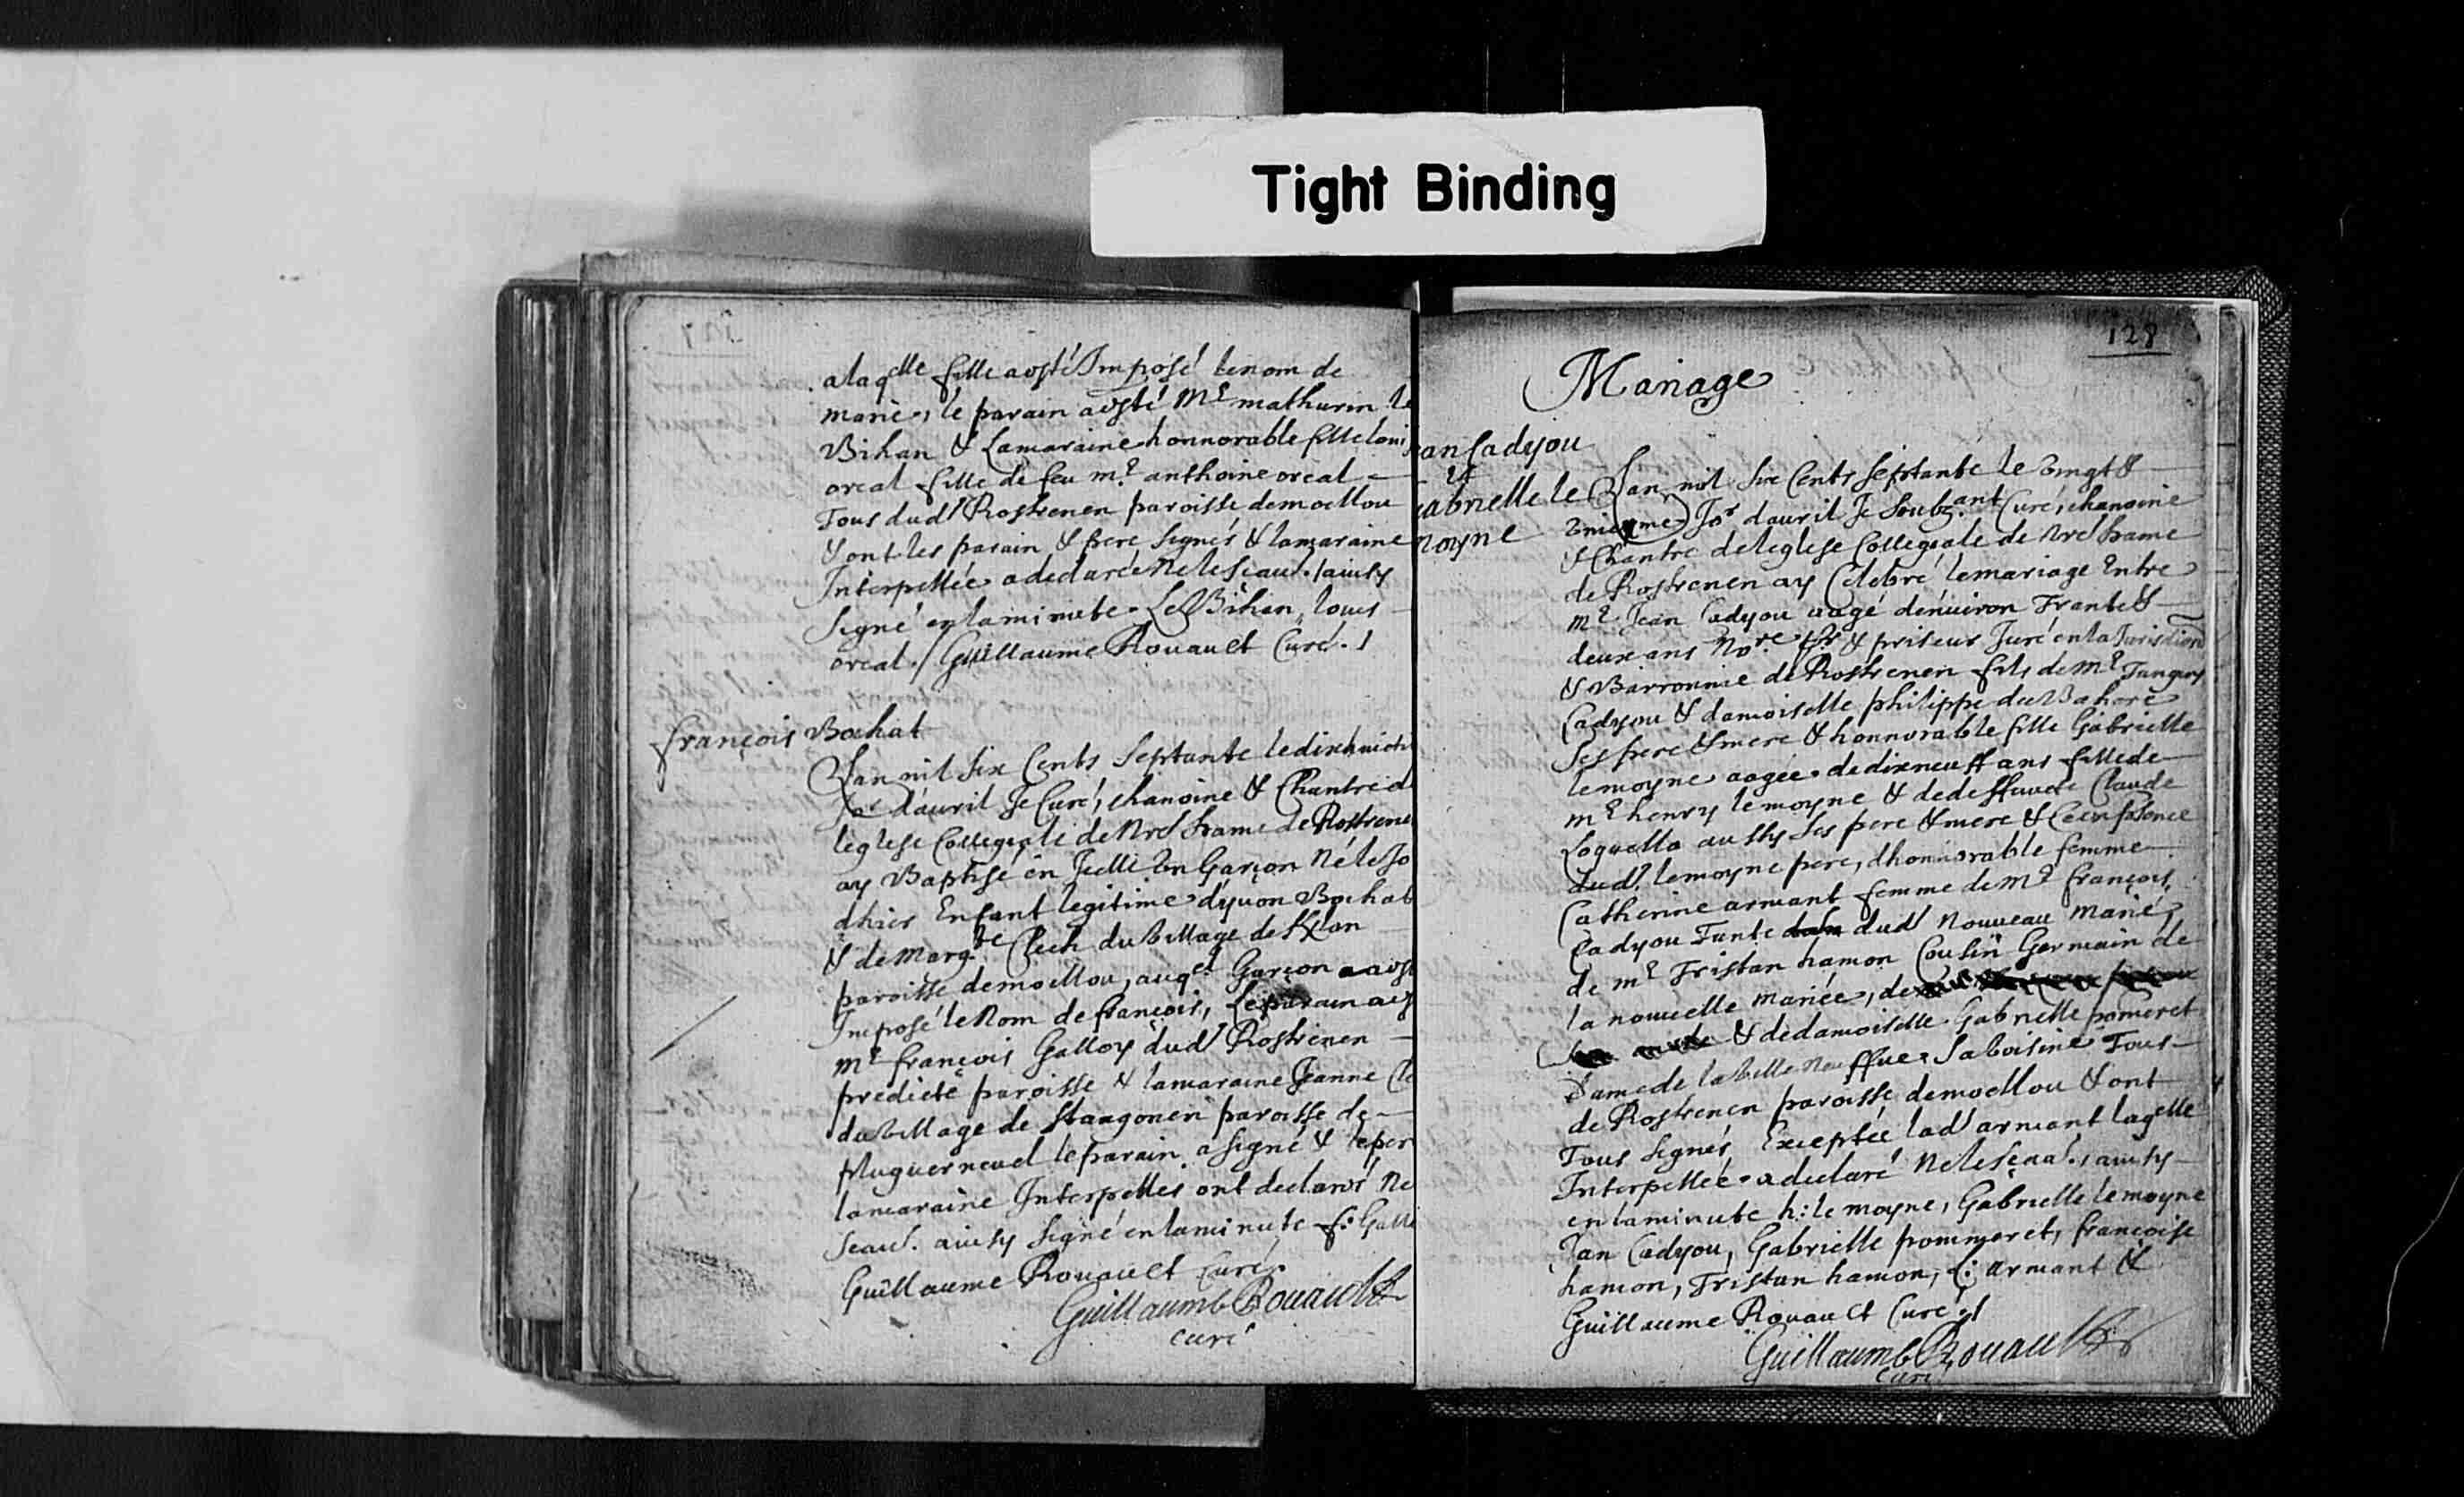 Tight Binding
alaqlle fille a esté Imposé le nom de
marie, le parain a esté Mr mathurin le
Bihan & Lamaraine honnorable fille loui
oreal fille de feu mr anthoine oreal
Tous dud Rostrenen paroisse demoellou
& ont les parain & pere signés & lamaraine
Interpellée a declarée Nele scauoir ainsy
Signé en la minute Le Bihan, loues
oreal / Guillaume Rouault Curé
françois Bochat
Lan mil six Cents Septante le dixhuict
Jor dauril Je Curé, chanoine & Chantre d
leglese Collegiale de Nre dame de Rostrene
ay Baptisé en Icelle Un Garçon Né le Jo
dhier Enfant legitime dyuon Bochat
& de Margte Clech du Village de
paroisse demoellou, auqel Garçon a est
Imposé le Nom de françois, Le parain a est
mr françois Galloy dud Rostrenen
predicte paroisse & lamaraine Jeanne Cle
du Village de Staugonen paroisse de
pluguerneuel le parain a signé & le per
lamaraine Interpellés ont declarés Ne
scauoir. ainsy signé en la minute f: Gall
Guillaume Rouault Curé
Guillaume Rouault
curé
128
Mariage
ean Cadyou
&
gabrielle le
moyne
Lan mil six Cents Septante le Vingt &
Vniesme Jor dauril Je Soubz.ant Curé, chanoine
& Chantre de leglese Collegiale de Nre dame
de Rostrenen ay Celebré le mariage Entre
mr Jean Cadyou aagé denuiron Trante &
deux ans Nore & priseur Juré en la Jurisdiction
& Barronnie de Rostrenen fils de Mr Tanguy
Cadyou & damoiselle philippe du Bahore
Ses pere & mere & honnorable fille Gabrielle
lemoyne aagée de dixneuff ans fille de
mr henry lemoyne & de deffuncte Claude
Loquella aussy Ses pere & mere & Ce en psence
dud. lemoyne pere, dhonnorable femme
Catherine armant femme de mr françois
Cadyou Tante dud Nouueau Marié,
de mr Tristan hamon Cousin Germain de
la nouuelle Mariée, de
& de damoiselle Gabrielle pomeret
Dame de la Ville Neuffue Sa Voisine Tous
de Rostrenen paroisse demoellou & ont
Tous Signés Exceptée lad armant laqelle
Interpellée a declaré Nele scauoir, ainsy
en la minute h: le moyne, Gabrielle lemoyne
Jan Cadyou, Gabrielle pommeret, françoise
hamon, Tristan hamon, C: armant &
Guillaume Rouault Curé
Guillaume Rouault
curé